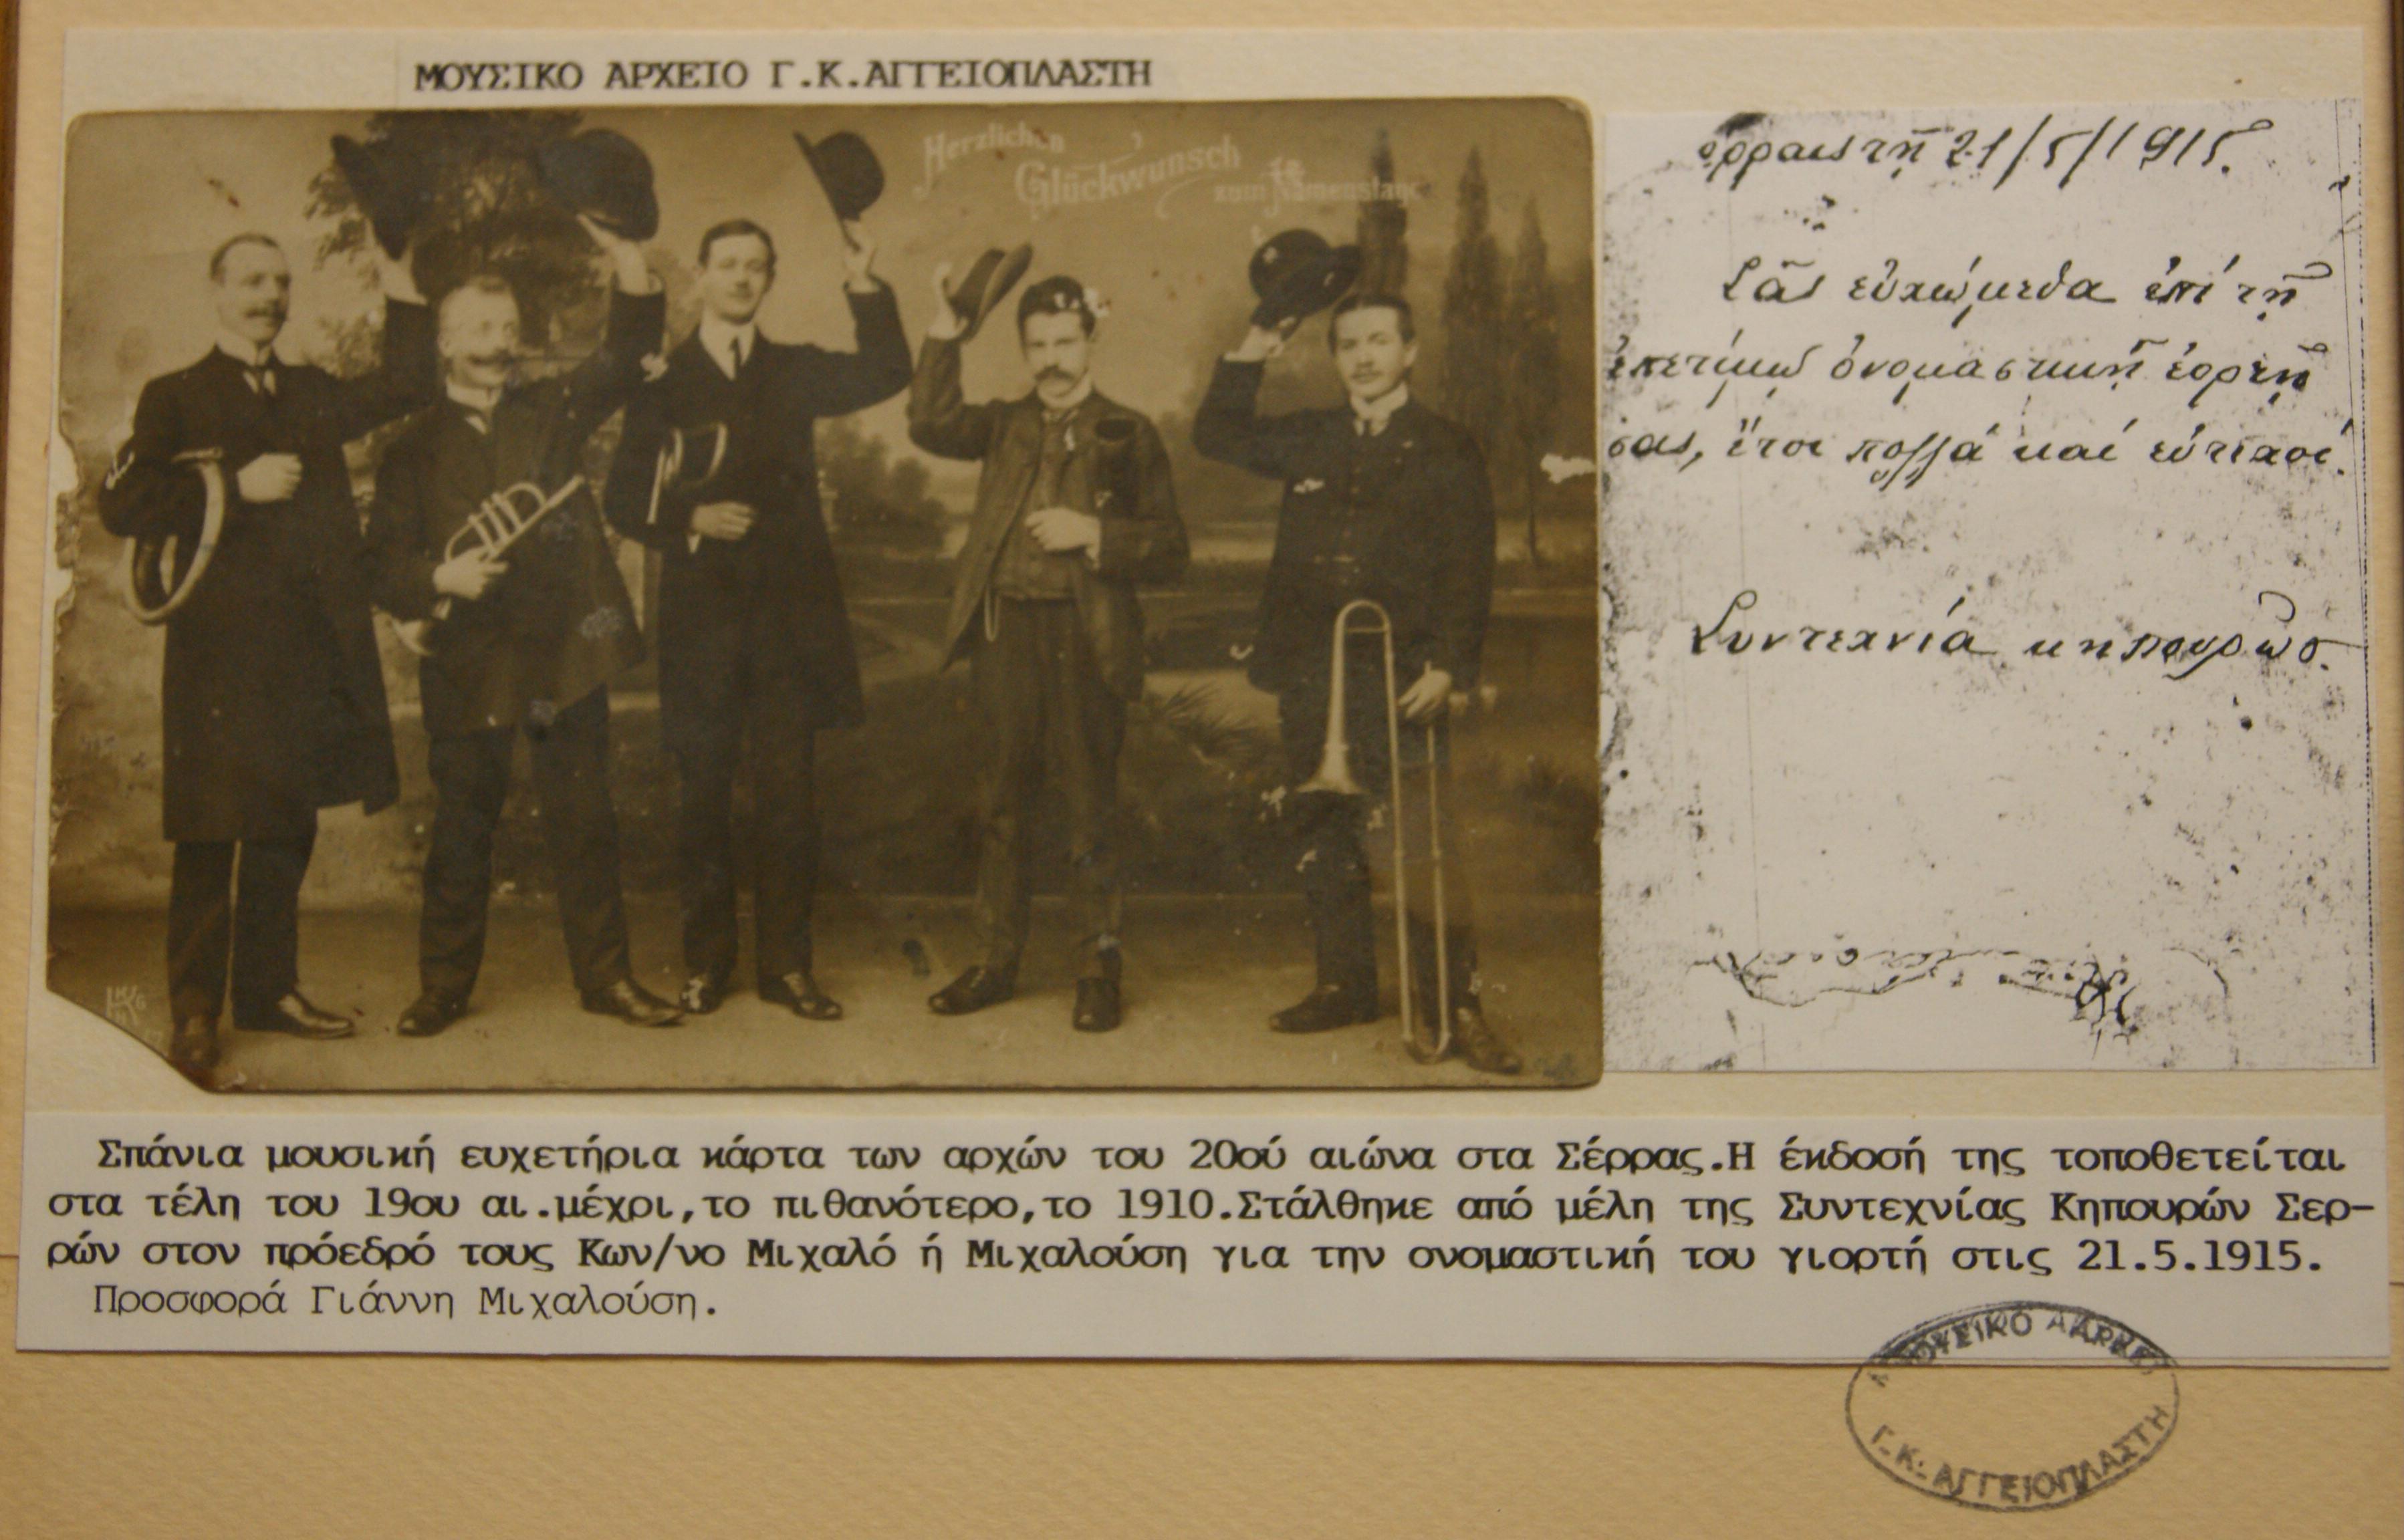 ΜΟΥΣΙΚΟ ΑΡΧΕΙΟ Γ.Κ.ΑΓΓΕΙΟΠΛΑΣΤΗ
Herzlichen
Glückwunsch
zum Namenstage
21/5/1915.
Σᾶς εὐχώμεθα ἐπί τῇ
ἐπετίῳ ὀνομαστικῇ ἑορτῇ
σας, ἔτοι πολλά καί εὐτυχοί.
Συντεχνία κηπουρῶν.
Σπάνια μουσική ευχετήρια κάρτα των αρχών του 20ού αιώνα στα Σέρρας.Η έκδοσή της τοποθετείται
στα τέλη του 19ου αι.μέχρι,το πιθανότερο,το 1910.Στάλθηκε από μέλη της Συντεχνίας Κηπουρών Σερ-
ρών στον πρόεδρό τους Κων/νο Μιχαλό ή Μιχαλούση για την ονομαστική του γιορτή στις 21.5.1915.
Προσφορά Γιάννη Μιχαλούση.
ΜΟΥΣΙΚΟ ΑΡΧΕΙΟ
Γ.Κ. ΑΓΓΕΙΟΠΛΑΣΤΗ